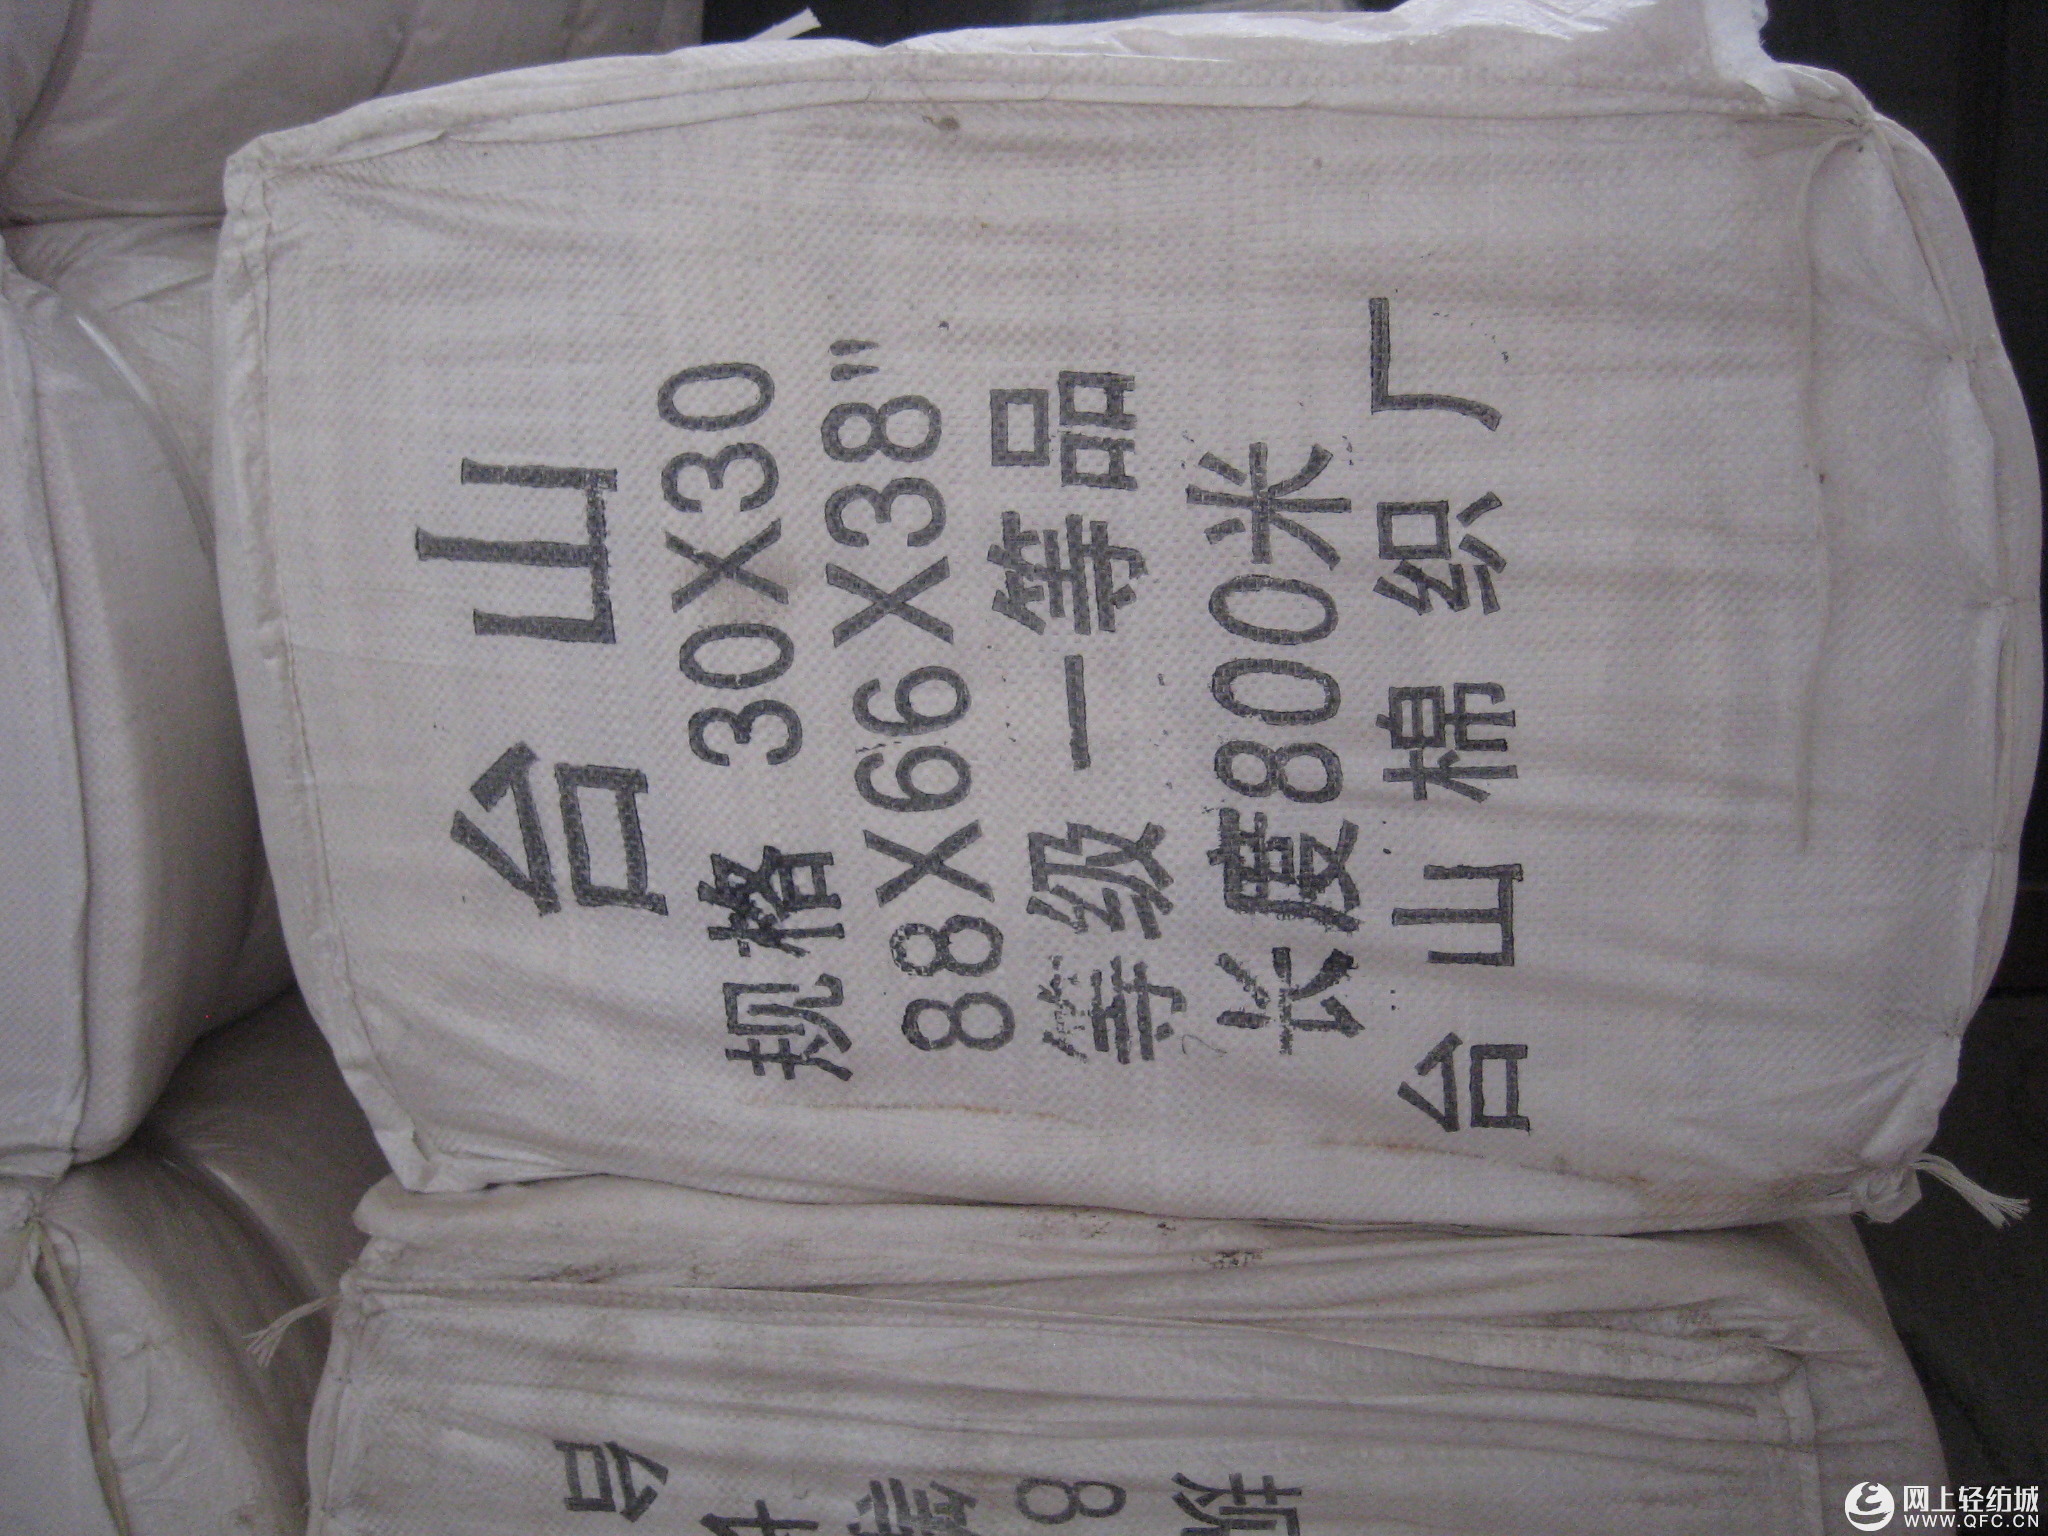 台山
规格 30X30
88X66X38"
等级 一等品
长度800米
台山棉织厂
台
等
8
规
网上轻纺城
WWW.QFC.CN